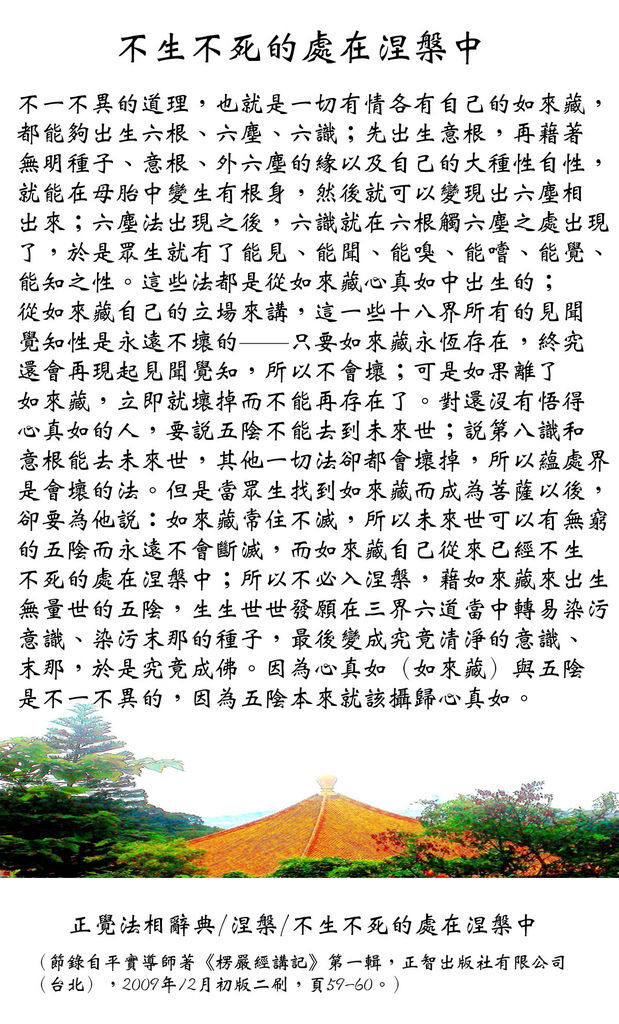 不生不死的處在涅槃中
不一不異的道理，也就是一切有情各有自己的如來藏，
都能夠出生六根、六塵、六識；先出生意根，再藉著
無明種子、意根、外六塵的緣以及自己的大種性自性，
就能在母胎中變生有根身，然後就可以變現出六塵相
出來；六塵法出現之後，六識就在六根觸六塵之處出現
了，於是眾生就有了能見、能聞、能嗅、能嚐、能覺、
能知之性。這些法都是從如來藏心真如中出生的；
從如來藏自己的立場來講，這一些十八界所有的見聞
覺知性是永遠不壞的——只要如來藏永恆存在，終究
還會再現起見聞覺知，所以不會壞；可是如果離了
如來藏，立即就壞掉而不能再存在了。對還沒有悟得
心真如的人，要說五陰不能去到未來世；說第八識和
意根能去未來世，其他一切法卻都會壞掉，所以蘊處界
是會壞的法。但是當眾生找到如來藏而成為菩薩以後，
卻要為他說：如來藏常住不滅，所以未來世可以有無窮
的五陰而永遠不會斷滅，而如來藏自己從來已經不生
不死的處在涅槃中；所以不必入涅槃，藉如來藏來出生
無量世的五陰，生生世世發願在三界六道當中轉易染污
意識、染污末那的種子，最後變成究竟清淨的意識、
末那，於是究竟成佛。因為心真如（如來藏）與五陰
是不一不異的，因為五陰本來就該攝歸心真如。
正覺法相辭典/涅槃/不生不死的處在涅槃中
（節錄自平實導師著《楞嚴經講記》第一輯，正智出版社有限公司
（台北），2009年12月初版二刷，頁59-60。）